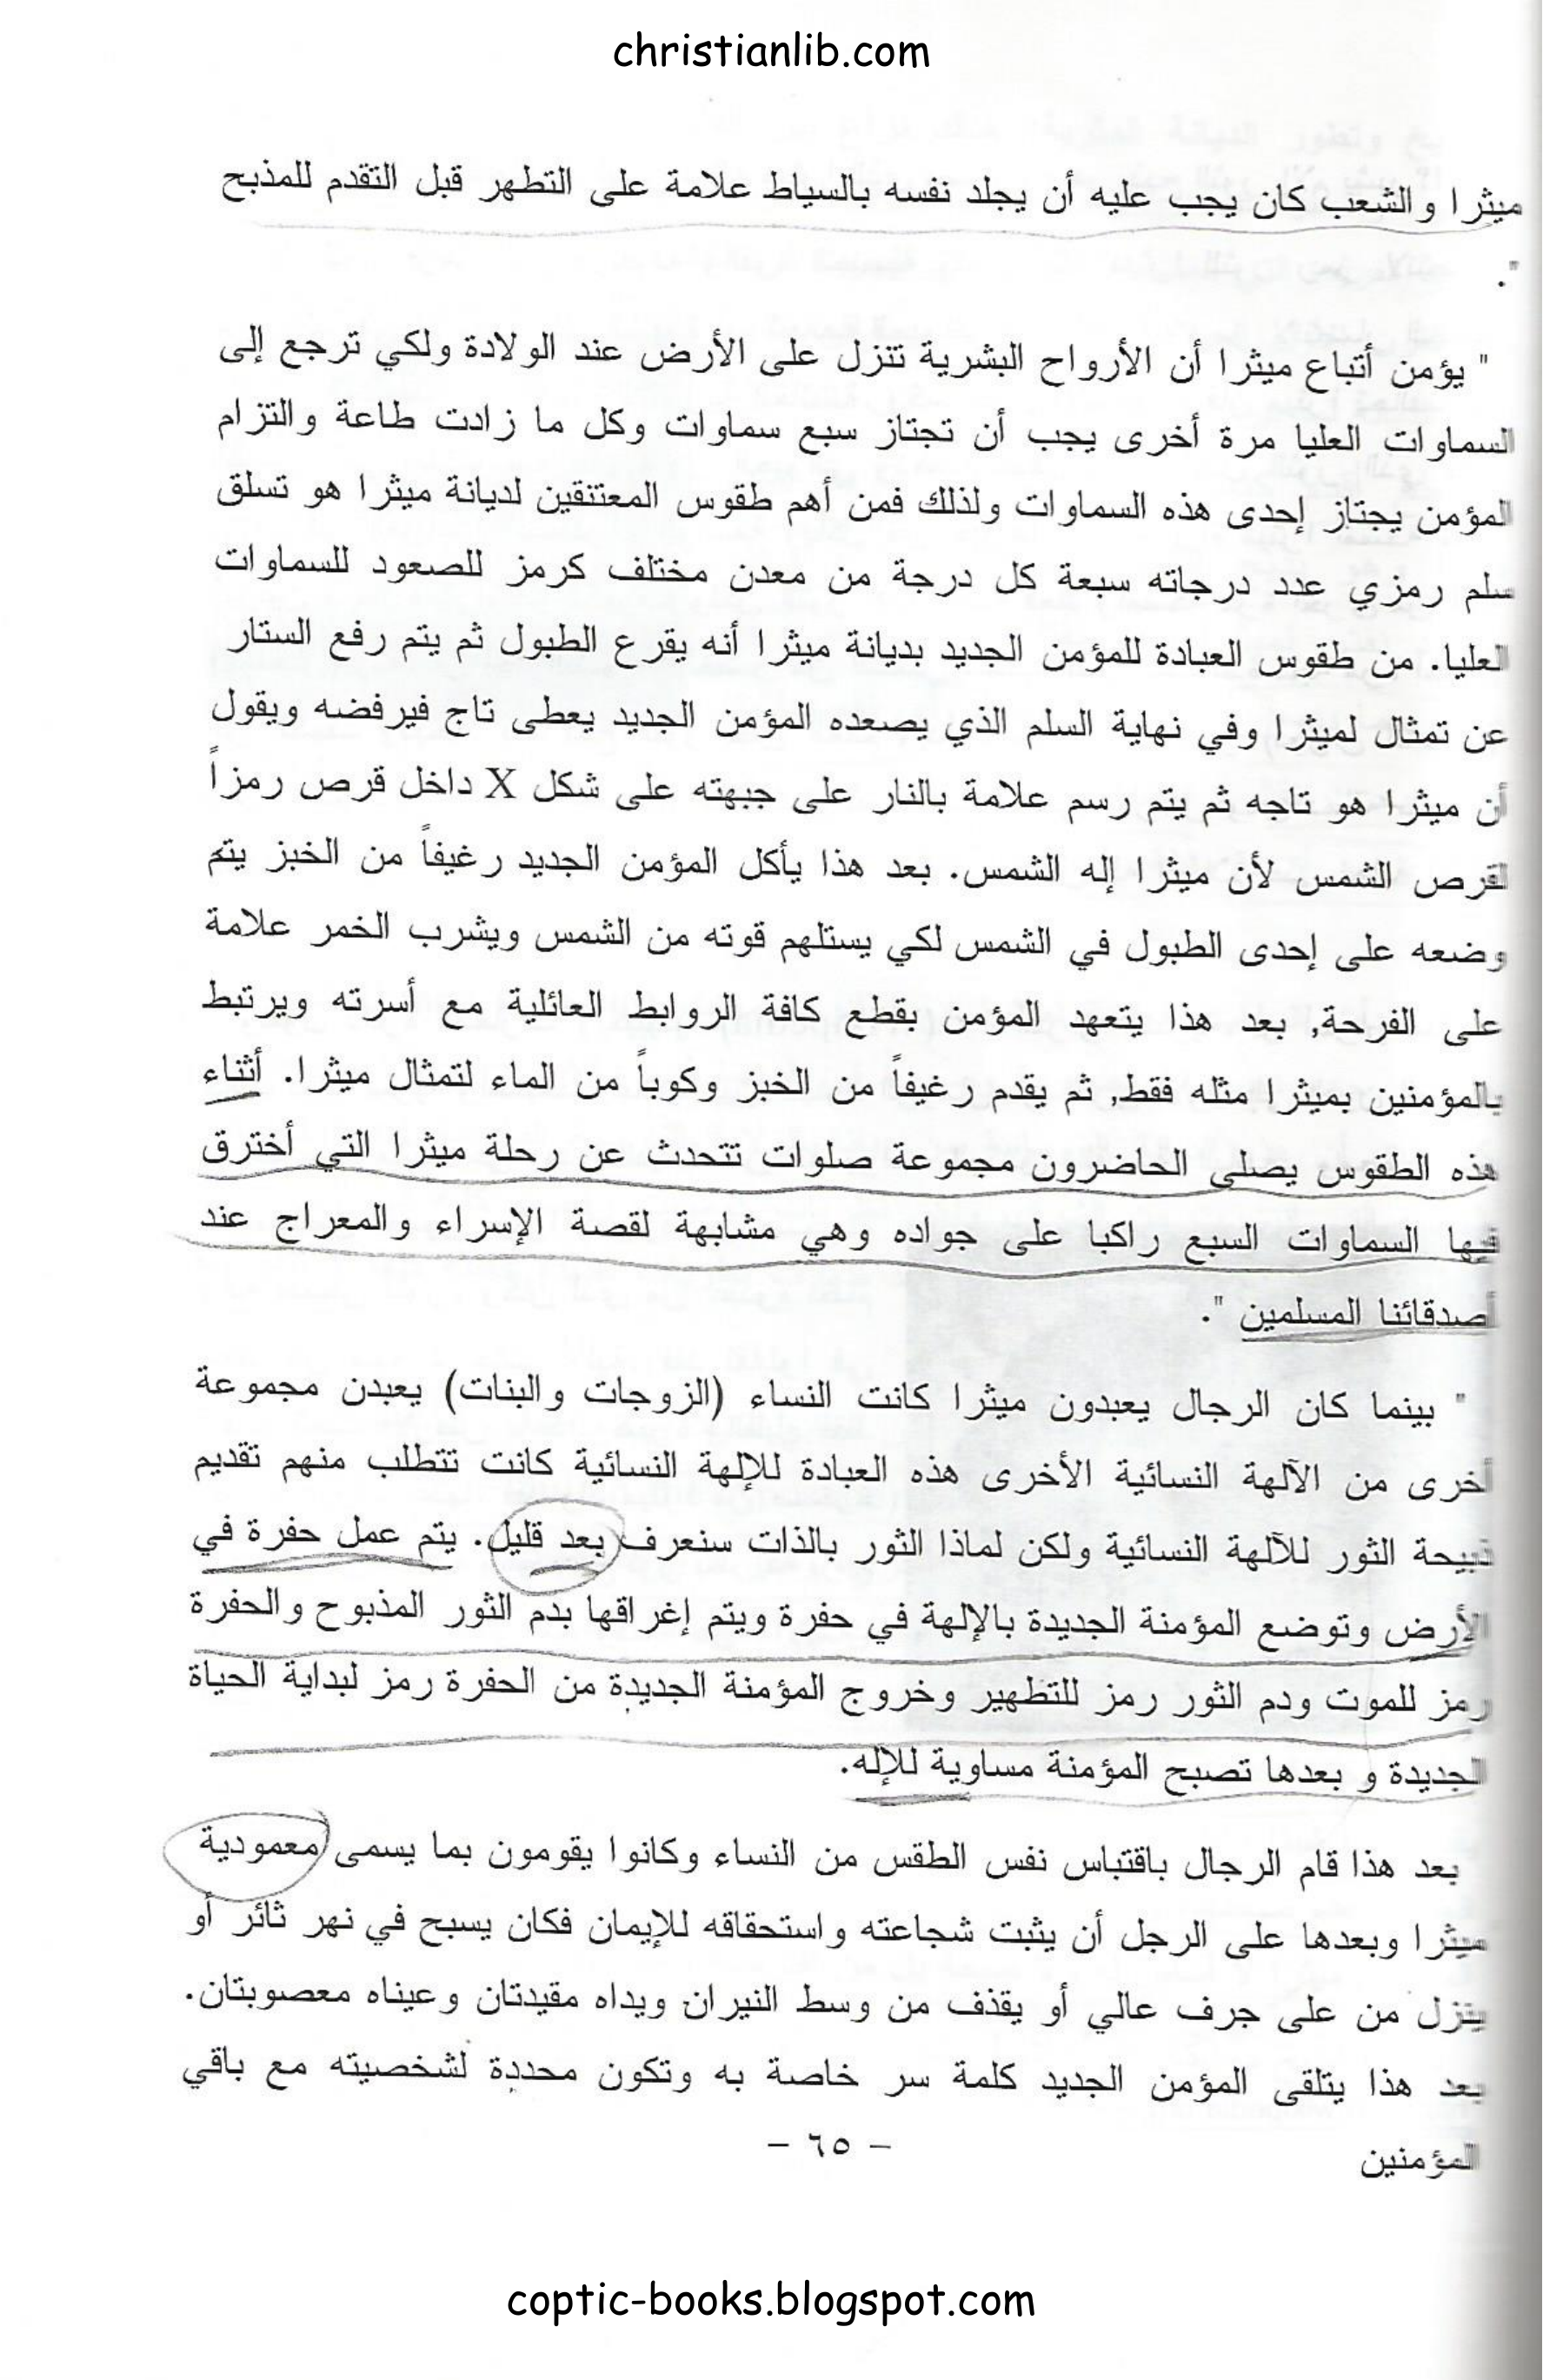 christianlib.com
ميثرا والشعب كان يجب عليه أن يجلد نفسه بالسياط علامة على التطهر قبل التقدم للمذبح
".
" يؤمن أتباع ميثرا أن الأرواح البشرية تنزل على الأرض عند الولادة ولكي ترجع إلى
السماوات العليا مرة أخرى يجب أن تجتاز سبع سماوات وكل ما زادت طاعة والتزام
المؤمن يجتاز إحدى هذه السماوات ولذلك فمن أهم طقوس المعتنقين لديانة ميثرا هو تسلق
سلم رمزي عدد درجاته سبعة كل درجة من معدن مختلف كرمز للصعود للسماوات
العليا. من طقوس العبادة للمؤمن الجديد بديانة ميثرا أنه يقرع الطبول ثم يتم رفع الستار
عن تمثال لميثرا وفي نهاية السلم الذي يصعده المؤمن الجديد يعطى تاج فيرفضه ويقول
أن ميثرا هو تاجه ثم يتم رسم علامة بالنار على جبهته على شكل X داخل قرص رمزاً
لقرص الشمس لأن ميثرا إله الشمس. بعد هذا يأكل المؤمن الجديد رغيفاً من الخبز يتم
وضعه على إحدى الطبول في الشمس لكي يستلهم قوته من الشمس ويشرب الخمر علامة
على الفرحة, بعد هذا يتعهد المؤمن بقطع كافة الروابط العائلية مع أسرته ويرتبط
بالمؤمنين بميثرا مثله فقط, ثم يقدم رغيفاً من الخبز وكوباً من الماء لتمثال ميثرا. أثناء
هذه الطقوس يصلي الحاضرون مجموعة صلوات تتحدث عن رحلة ميثرا التي أخترق
فيها السماوات السبع راكبا على جواده وهي مشابهة لقصة الإسراء والمعراج عند
أصدقائنا المسلمين ".
" بينما كان الرجال يعبدون ميثرا كانت النساء (الزوجات والبنات) يعبدن مجموعة
أخرى من الآلهة النسائية الأخرى هذه العبادة للإلهة النسائية كانت تتطلب منهم تقديم
ذبيحة الثور للآلهة النسائية ولكن لماذا الثور بالذات سنعرف بعد قليل. يتم عمل حفرة في
الأرض وتوضع المؤمنة الجديدة بالإلهة في حفرة ويتم إغراقها بدم الثور المذبوح والحفرة
رمز للموت ودم الثور رمز للتطهير وخروج المؤمنة الجديدة من الحفرة رمز لبداية الحياة
الجديدة و بعدها تصبح المؤمنة مساوية للإله.
بعد هذا قام الرجال باقتباس نفس الطقس من النساء وكانوا يقومون بما يسمى معمودية
ميثرا وبعدها على الرجل أن يثبت شجاعته واستحقاقه للإيمان فكان يسبح في نهر ثائر أو
ينزل من على جرف عالي أو يقذف من وسط النيران ويداه مقيدتان وعيناه معصوبتان.
بعد هذا يتلقى المؤمن الجديد كلمة سر خاصة به وتكون محددة لشخصيته مع باقي
المؤمنين
- ٦٥ -
coptic-books.blogspot.com